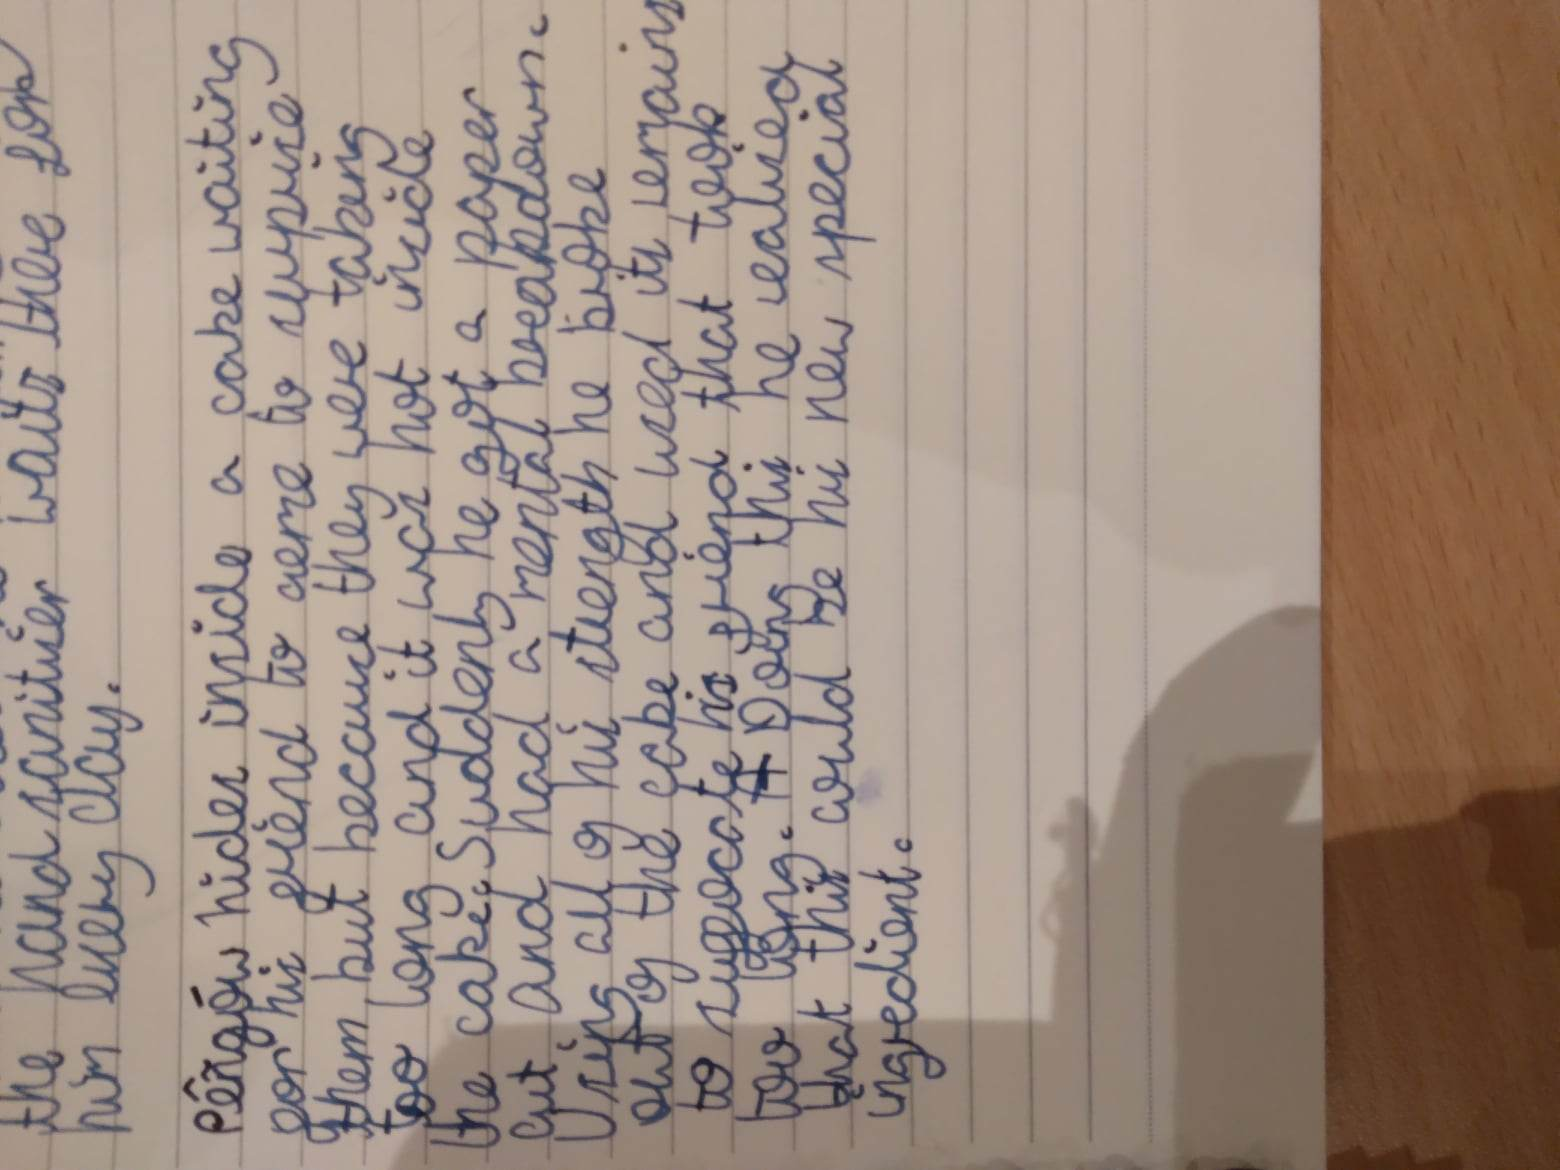 the hand sanitiser waits there for
him every day.
Pengow hides inside a cake waiting
for his friend to come to suprise
them but because they were taking
too long and it was hot inside
the cake, Suddenly he got a paper
cut and had a mental breakdown.
Using all of his strength he broke
out of the cake and used its remains
to suffocate his friend that took
too long. Doing this he realised
that this could be his new special
ingredient.